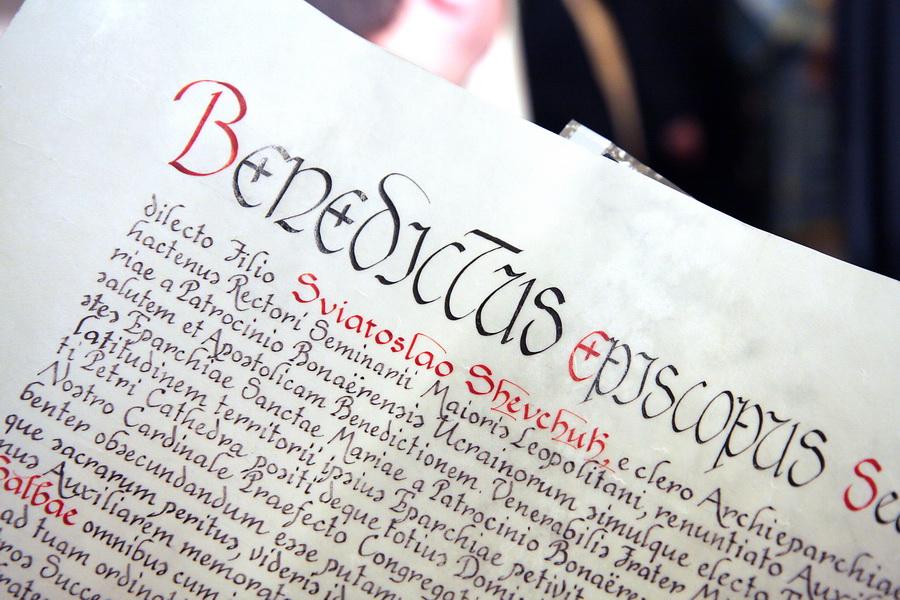 Benedictus Episcopus
dilecto Filio Sviatoslao Shevchuk, e clero Archieparchiae
hactenus Rectori Seminarii Maioris Leopolitani, renuntiato Auxil
riae a Patrocinio Bonaërensis Ucrainorum simulque electo
salutem et Apostolicam Benedictionem. Venerabilis Frater
Eparchiae Sanctae Mariae a Patrocinio Bonaëren
latitudinem territorii ipsius Eparchiae petivit
ti Petri Cathedra positi deque totius Domi
Nostro Cardinale Praefecto Congregat
benter obsecundandum esse putam
que sacrarum peritus, videris id
mus Auxiliarem memorat
Balbae omnibus cum i
ad tuam ordin
ros Succe